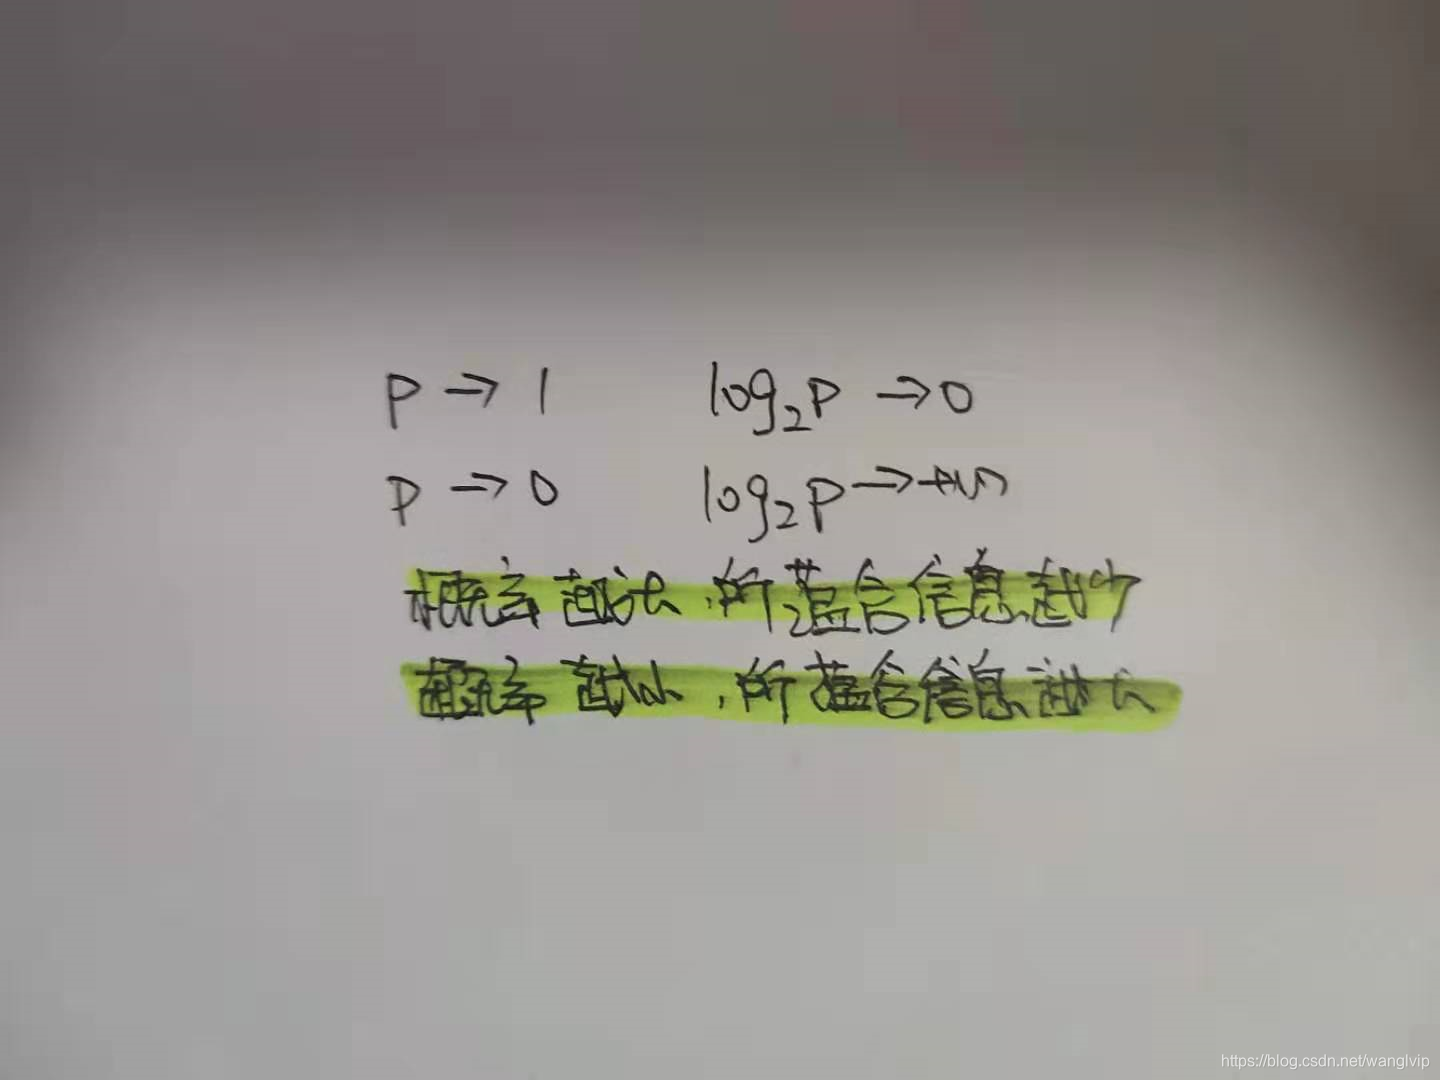 P → 1 log₂P → 0
P → 0 log₂P → +∞
概率越大，所蕴含信息越少
概率越小，所蕴含信息越大
https://blog.csdn.net/wanglvip